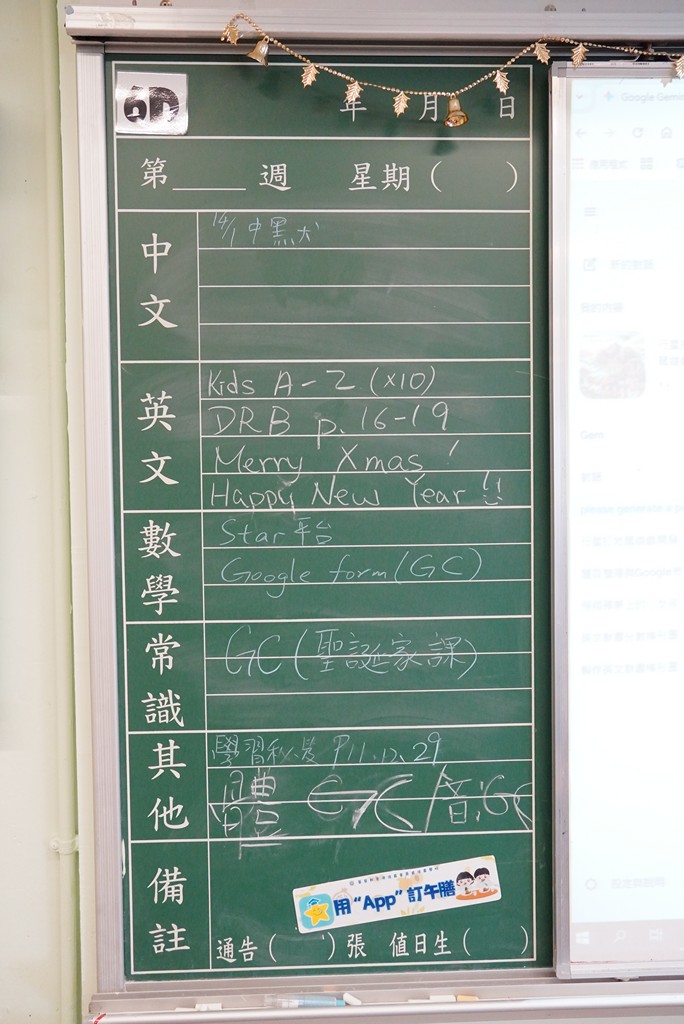 6D
年 月 日
第____週 星期( )
中文
14/1 中黑犬
英文
Kids A-Z (x10)
DRB p. 16-19
Merry Xmas!
Happy New Year!!
數學
Star平台
Google form (GC)
常識
GC (聖誕家課)
其他
P11, 12, 29
體 GC/音:GC
備註
用“App”訂午膳
通告( )張 值日生( )